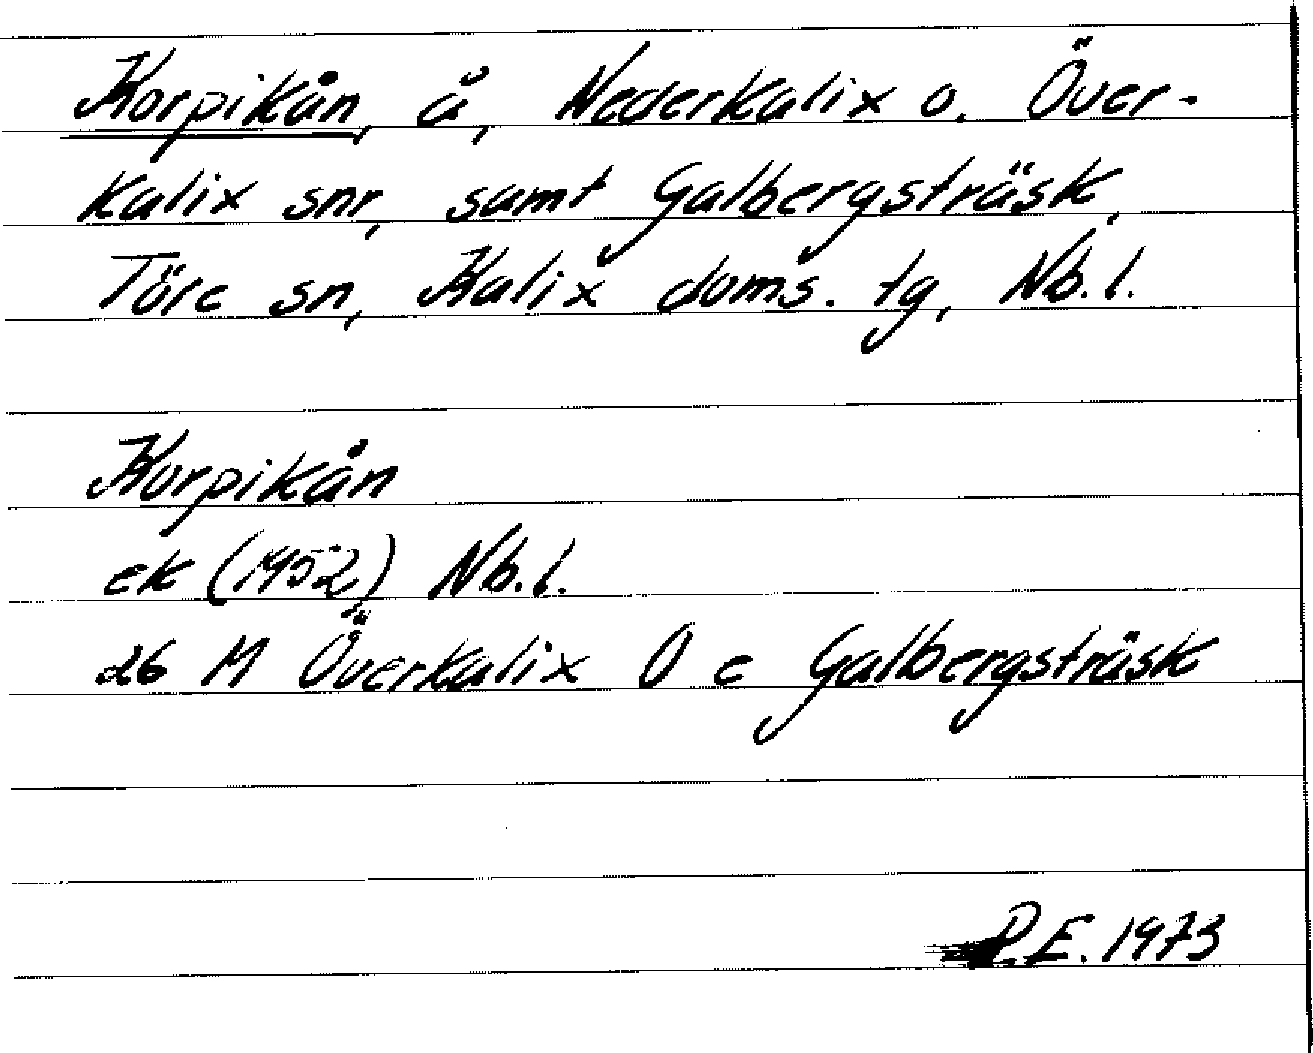 Korpikån, å, Nederkalix o. Över-
kalix snr, samt Galbergsträsk,
Töre sn, Kalix doms. tg, Nb.l.
Korpikån
ek (1952) Nb.l.
26 M Överkalix O e Galbergsträsk
P.E. 1973